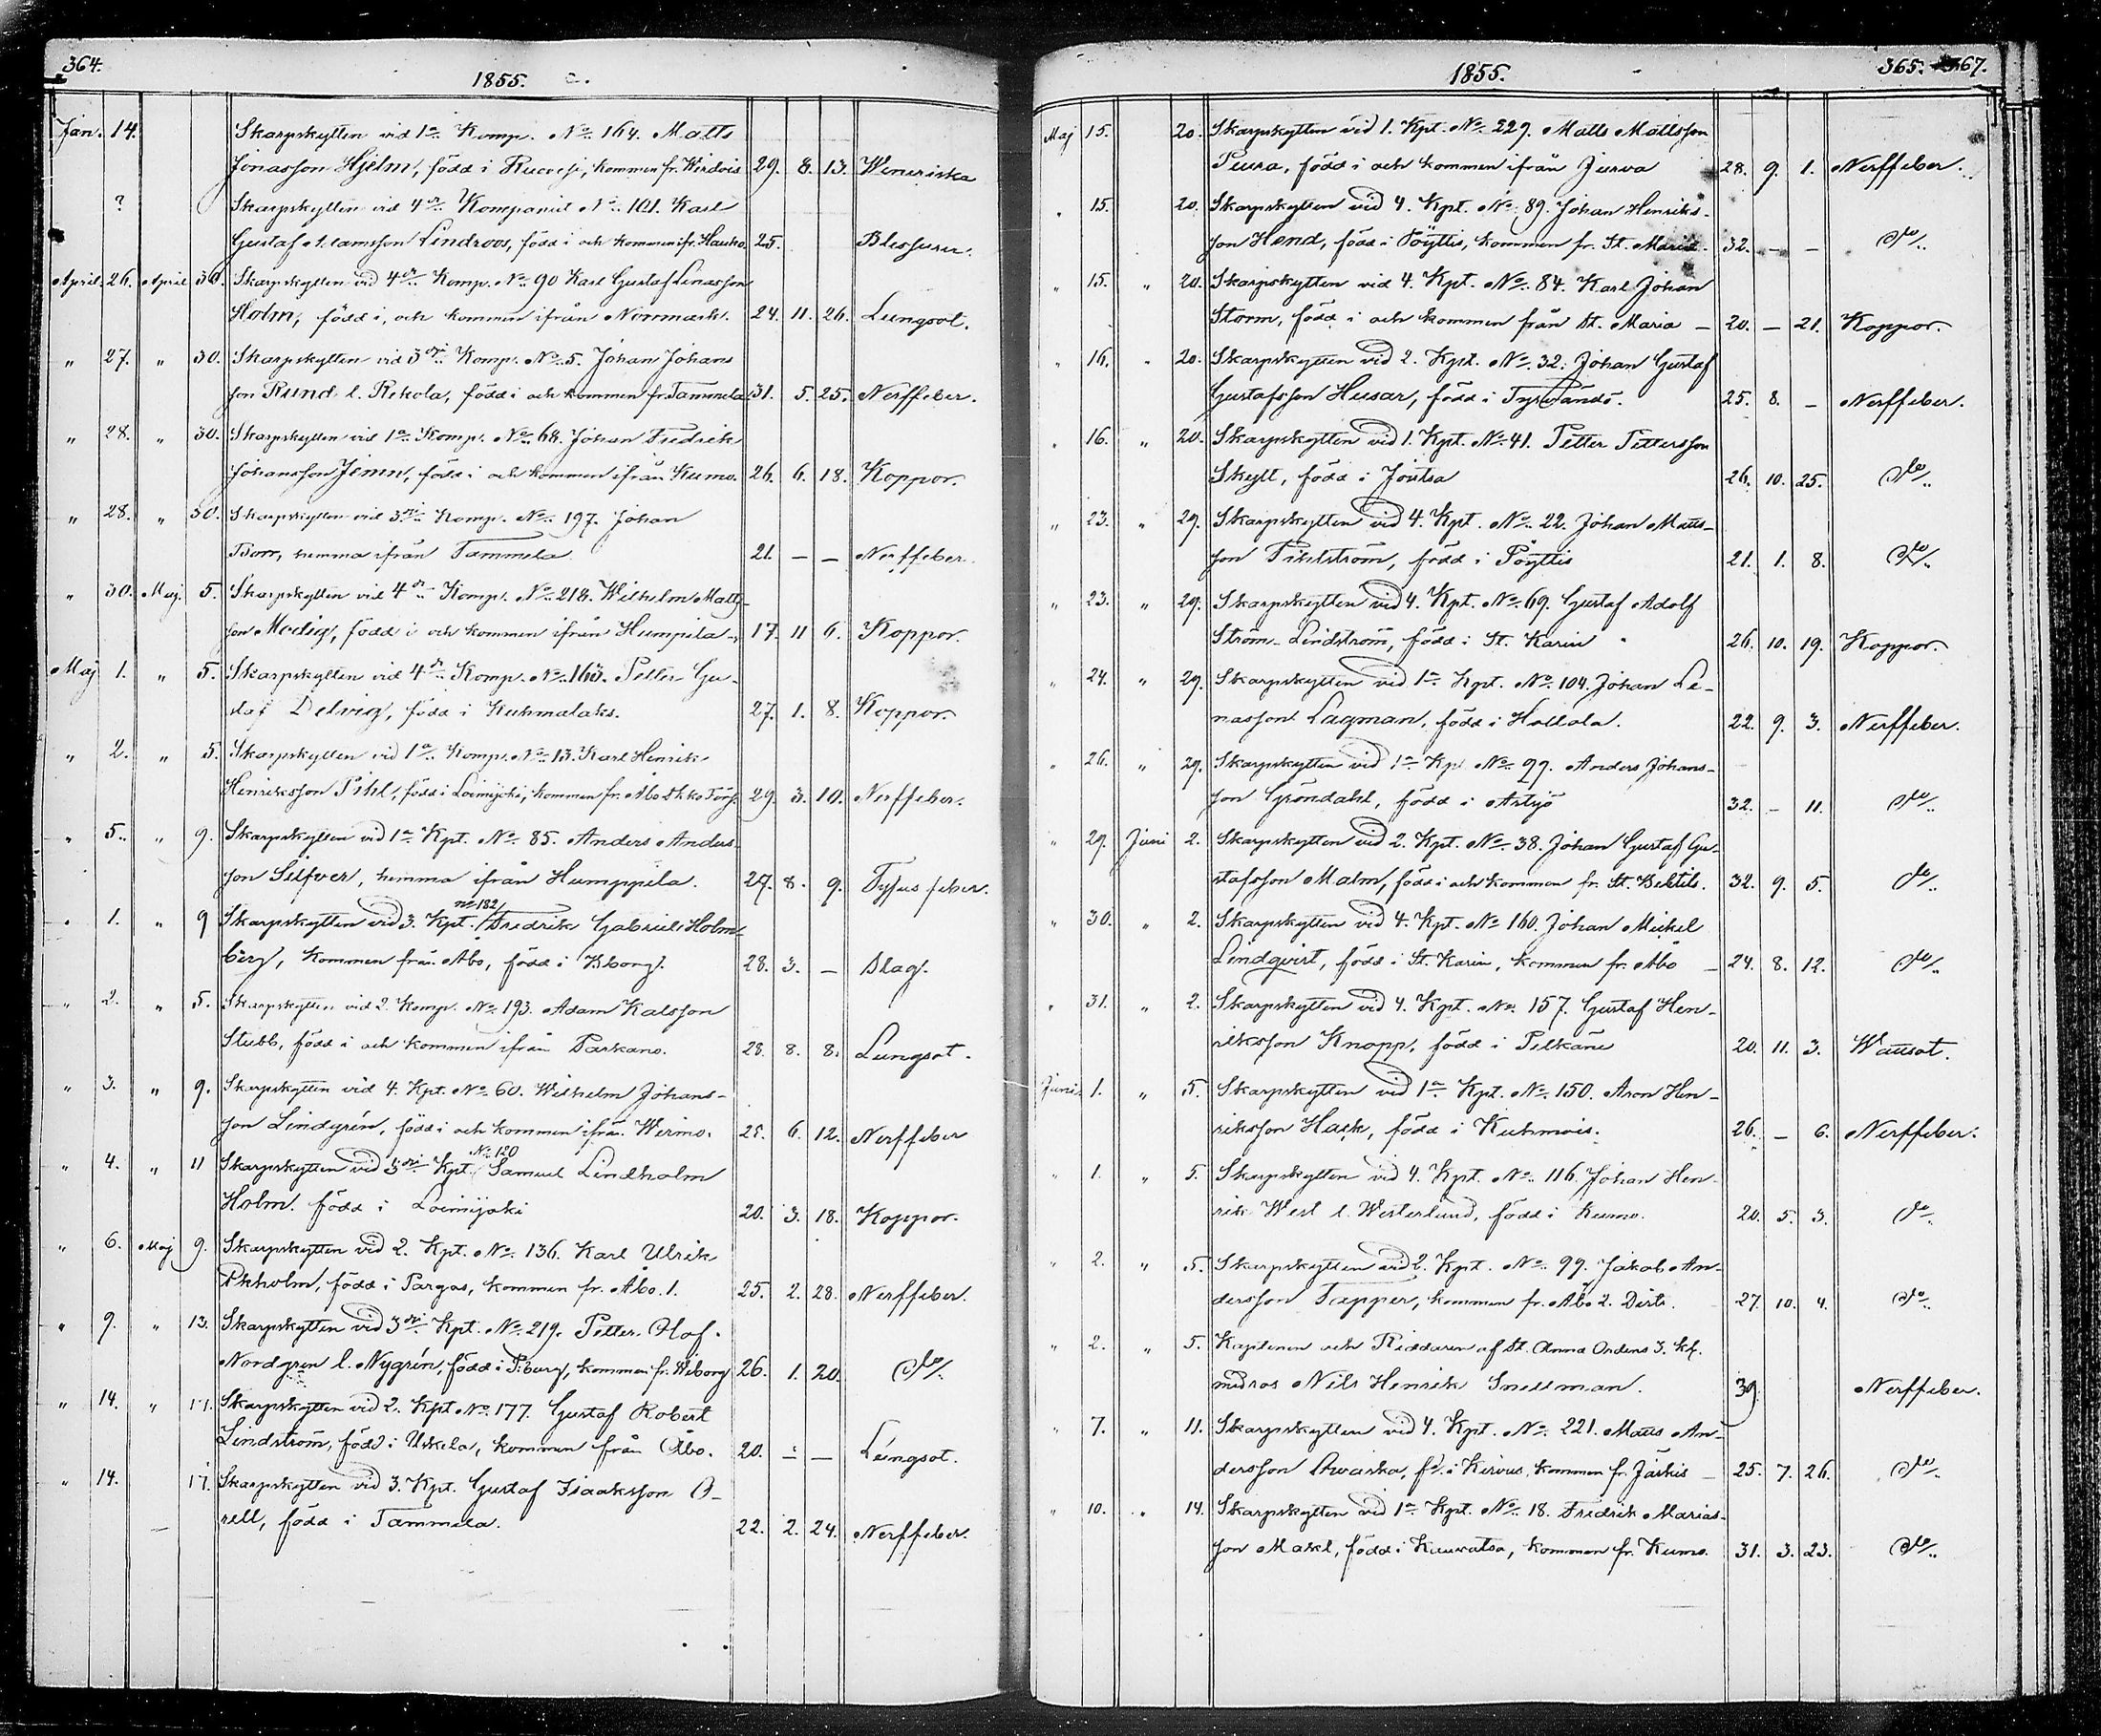 364.
1855.
Jan. 14. Skarpskytten vid 1a Komp. No. 164. Matts
Jonasson Hjelm, född i Ruovesi, kommen fr. Wirdois 29. 8. 13. Weneriska
? Skarpskytten vid 4de Kompaniet No. 101. Karl
Gustaf Lindroos, född i och kommen ifr. Hauho. 25. Blessurer.
April. 26. April 30. Skarpskytten vid 4de Komp. No. 90 Karl Gustaf Lenasson
Holm, född i, och kommen ifrån Norrmark. 24. 11. 26. Lungsot.
" 27. " 30. Skarpskytten vid 3dje Komp. No. 5. Johan Johans
son Rund l. Rekola, född i och kommen fr. Tammela 31. 5. 25. Nerffeber.
" 28. " 30. Skarpskytten vid 1a Komp. No. 68. Johan Fredrik
Johansson Jernn, född i och kommen ifrån Kumo. 26. 6. 18. Koppor.
" 28. " 30. Skarpskytten vid 3dje Komp. No. 197. Johan
Björr, hemma ifrån Tammela 21. — — Nerffeber.
" 30. Maj. 5. Skarpskytten vid 4de Komp. No. 218. Wilhelm Matts-
son Modig, född i och kommen ifrån Humpila 17. 11 6. Koppor.
Maj 1. " 5. Skarpskytten vid 4de Komp. No. 163. Petter Gu-
staf Delvig, född i Kuhmalaks. 27. 1. 8. Koppor.
" 2. " 5. Skarpskytten vid 1a Komp. No. 13. Karl Henrik
Henriksson Pihl, född i Loimijoki, kommen fr. Åbo 29. 3. 10. Nerffeber.
" 5. " 9. Skarpskytten vid 1a Kpt. No. 85. Anders Anders
son Silfver, hemma ifrån Humppila. 27. 8. 9. Tyfus feber.
" 1. " 9 Skarpskytten vid 3. Kpt. no 182/ Fredrik Gabriel Holm-
berg, kommen från Åbo, född i Kborg. 28. 3. — Slag.
" 2. " 5. Skarpskytten vid 2. Komp. No. 193. Adam Kalsson
Stubb, född i och kommen ifrån Parkano. 28. 8. 8. Lungsot.
" 3. " 9. Skarpskytten vid 4. Kpt. No. 60. Wilhelm Johans-
son Lindgrén, född i och kommen ifrån Wirmo. 25. 6. 12. Nerffeber
" 4. " 11 Skarpskytten vid 3dje Kpt. No. 120 Samuel Lindholm
Holm. född i Loimijoki 20. 3. 18. Koppor.
" 6. Maj 9. Skarpskytten vid 2. Kpt. No. 136. Karl Ulrik
Ekholm, född i Pargas, kommen fr. Åbo. 1. 25. 2. 28. Nerffeber.
" 9. " 13. Skarpskytten vid 3dje Kpt. No. 219. Petter. Olof.
Nordgren l. Nygrén, född i Wiborg, kommen fr. Wiborg 26. 1. 20. Do/.
" 14. " 17. Skarpskytten vid 2. Kpt No. 177. Gustaf Robert
Lindström, född i Uskela, kommen från Åbo. 20. — — Lungsot.
" 14. 17. Skarpskytten vid 3. Kpt. Gustaf Isaaksson O-
rell, född i Tammela. 22. 2. 24. Nerffeber.
1855.
365. 367.
Maj 15. 20. Skarpskytten vid 1. Kpt. No. 229. Matts Mattsson
Puura, född i och kommen ifrån Jurva 28. 9. 1. Nerffeber.
" 15. 20. Skarpskytten vid 4. Kpt. No. 89. Johan Henriks-
son Hend, född i Pöyttis, kommen fr. St. Marie. 32. — — Do/.
" 15. " 20. Skarpskytten vid 4. Kpt. No. 84. Karl Johan
Storm, född i och kommen från St. Maria — 20. — 21. Koppor.
" 16. " 20. Skarpskytten vid 2. Kpt. No. 32. Johan Gustaf
Gustafsson Husar, född i Tyrvändö. 25. 8. — Nerffeber.
" 16. " 20. Skarpskytten vid 1. Kpt. No. 41. Petter Pettersson
Skytt, född i Joutsa 26. 10. 25. Do/.
" 23. " 29. Skarpskytten vid 4. Kpt. No. 22. Johan Matts-
son Pihlström, född i Pöyttis 21. 1. 8. Do/.
" 23. " 29. Skarpskytten vid 4. Kpt. No. 69. Gustaf Adolf
Ström-Lindström, född i St. Karin 26. 10. 19. Koppor.
" 24. " 29. Skarpskytten vid 1a Kpt. No. 104. Johan Le-
nasson Lagman, född i Hollola. 22. 9. 3. Nerffeber.
" 26. " 29. Skarpskytten vid 1a Kpt. No. 99. Anders Johans-
son Gröndahl, född i Artsjö 32. — 11. Do/.
" 29. Juni 2. Skarpskytten vid 2. Kpt. No. 38. Johan Gustaf Gu-
stafsson Malm, född i och kommen fr. St. Bertils. 32. 9. 5. Do/.
" 30. " 2. Skarpskytten vid 4. Kpt. No 160. Johan Mickel
Lindqvist, född i St. Karin, kommen fr. Åbo — 24. 8. 12. Do/.
" 31. " 2. Skarpskytten vid 4. Kpt. No. 157. Gustaf Hen-
riksson Knopp, född i Pelkäne 20. 11. 3. Wattsot.
Juni. 1. " 5. Skarpskytten vid 1a Kpt. No. 150. Aron Hen-
riksson Hask, född i Kuhmois. 26. — 6. Nerffeber.
" 1. " 5. Skarpskytten vid 4. Kpt. No. 116. Johan Hen-
rik West l. Westerlund, född i Kumo. 20. 5. 3. Do/.
" 2. " 5. Skarpskytten vid 2. Kpt. No. 99. Jakob An-
dersson Tapper, kommen fr. Åbo 2. Distr. 27. 10. 4. Do/.
" 2. " 5. Kaptenen och Riddaren af St. Anna Ordens 3. kl.
med ros Nils Henrik Snellman. 39. Nerffeber.
" 7. " 11. Skarpskytten vid 4. Kpt. No. 221. Matts An-
dersson Awaska, fd. i Kirvus, kommen fr. Jäskis — 25. 7. 26. Do/.
" 10. " 14. Skarpskytten vid 1a Kpt. No. 18. Fredrik Marias-
son Makl, född i Kauvatsa, kommen fr. Kumo. 31. 3. 23. Do/.